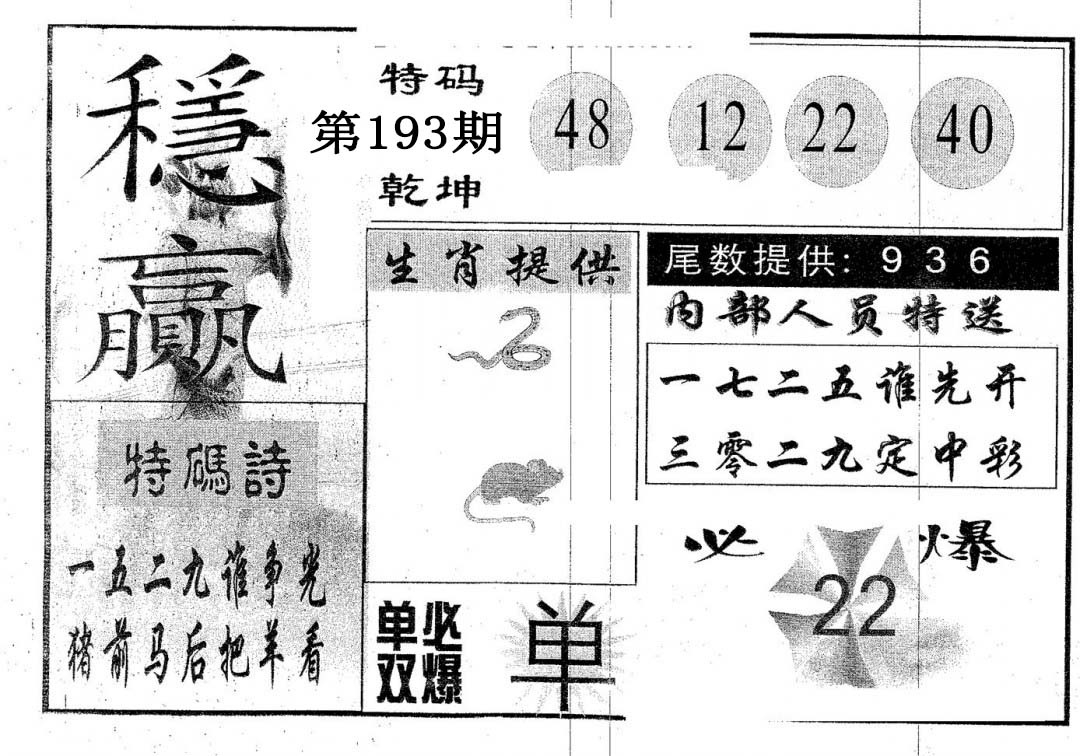 穩贏
特码
第193期
乾坤
48 12 22 40
生肖提供
尾数提供: 9 3 6
内部人员特送
一七二五谁先开
三零二九定中彩
特碼詩
一五二九谁争光
猪前马后把羊看
单双必爆
单
必爆
22